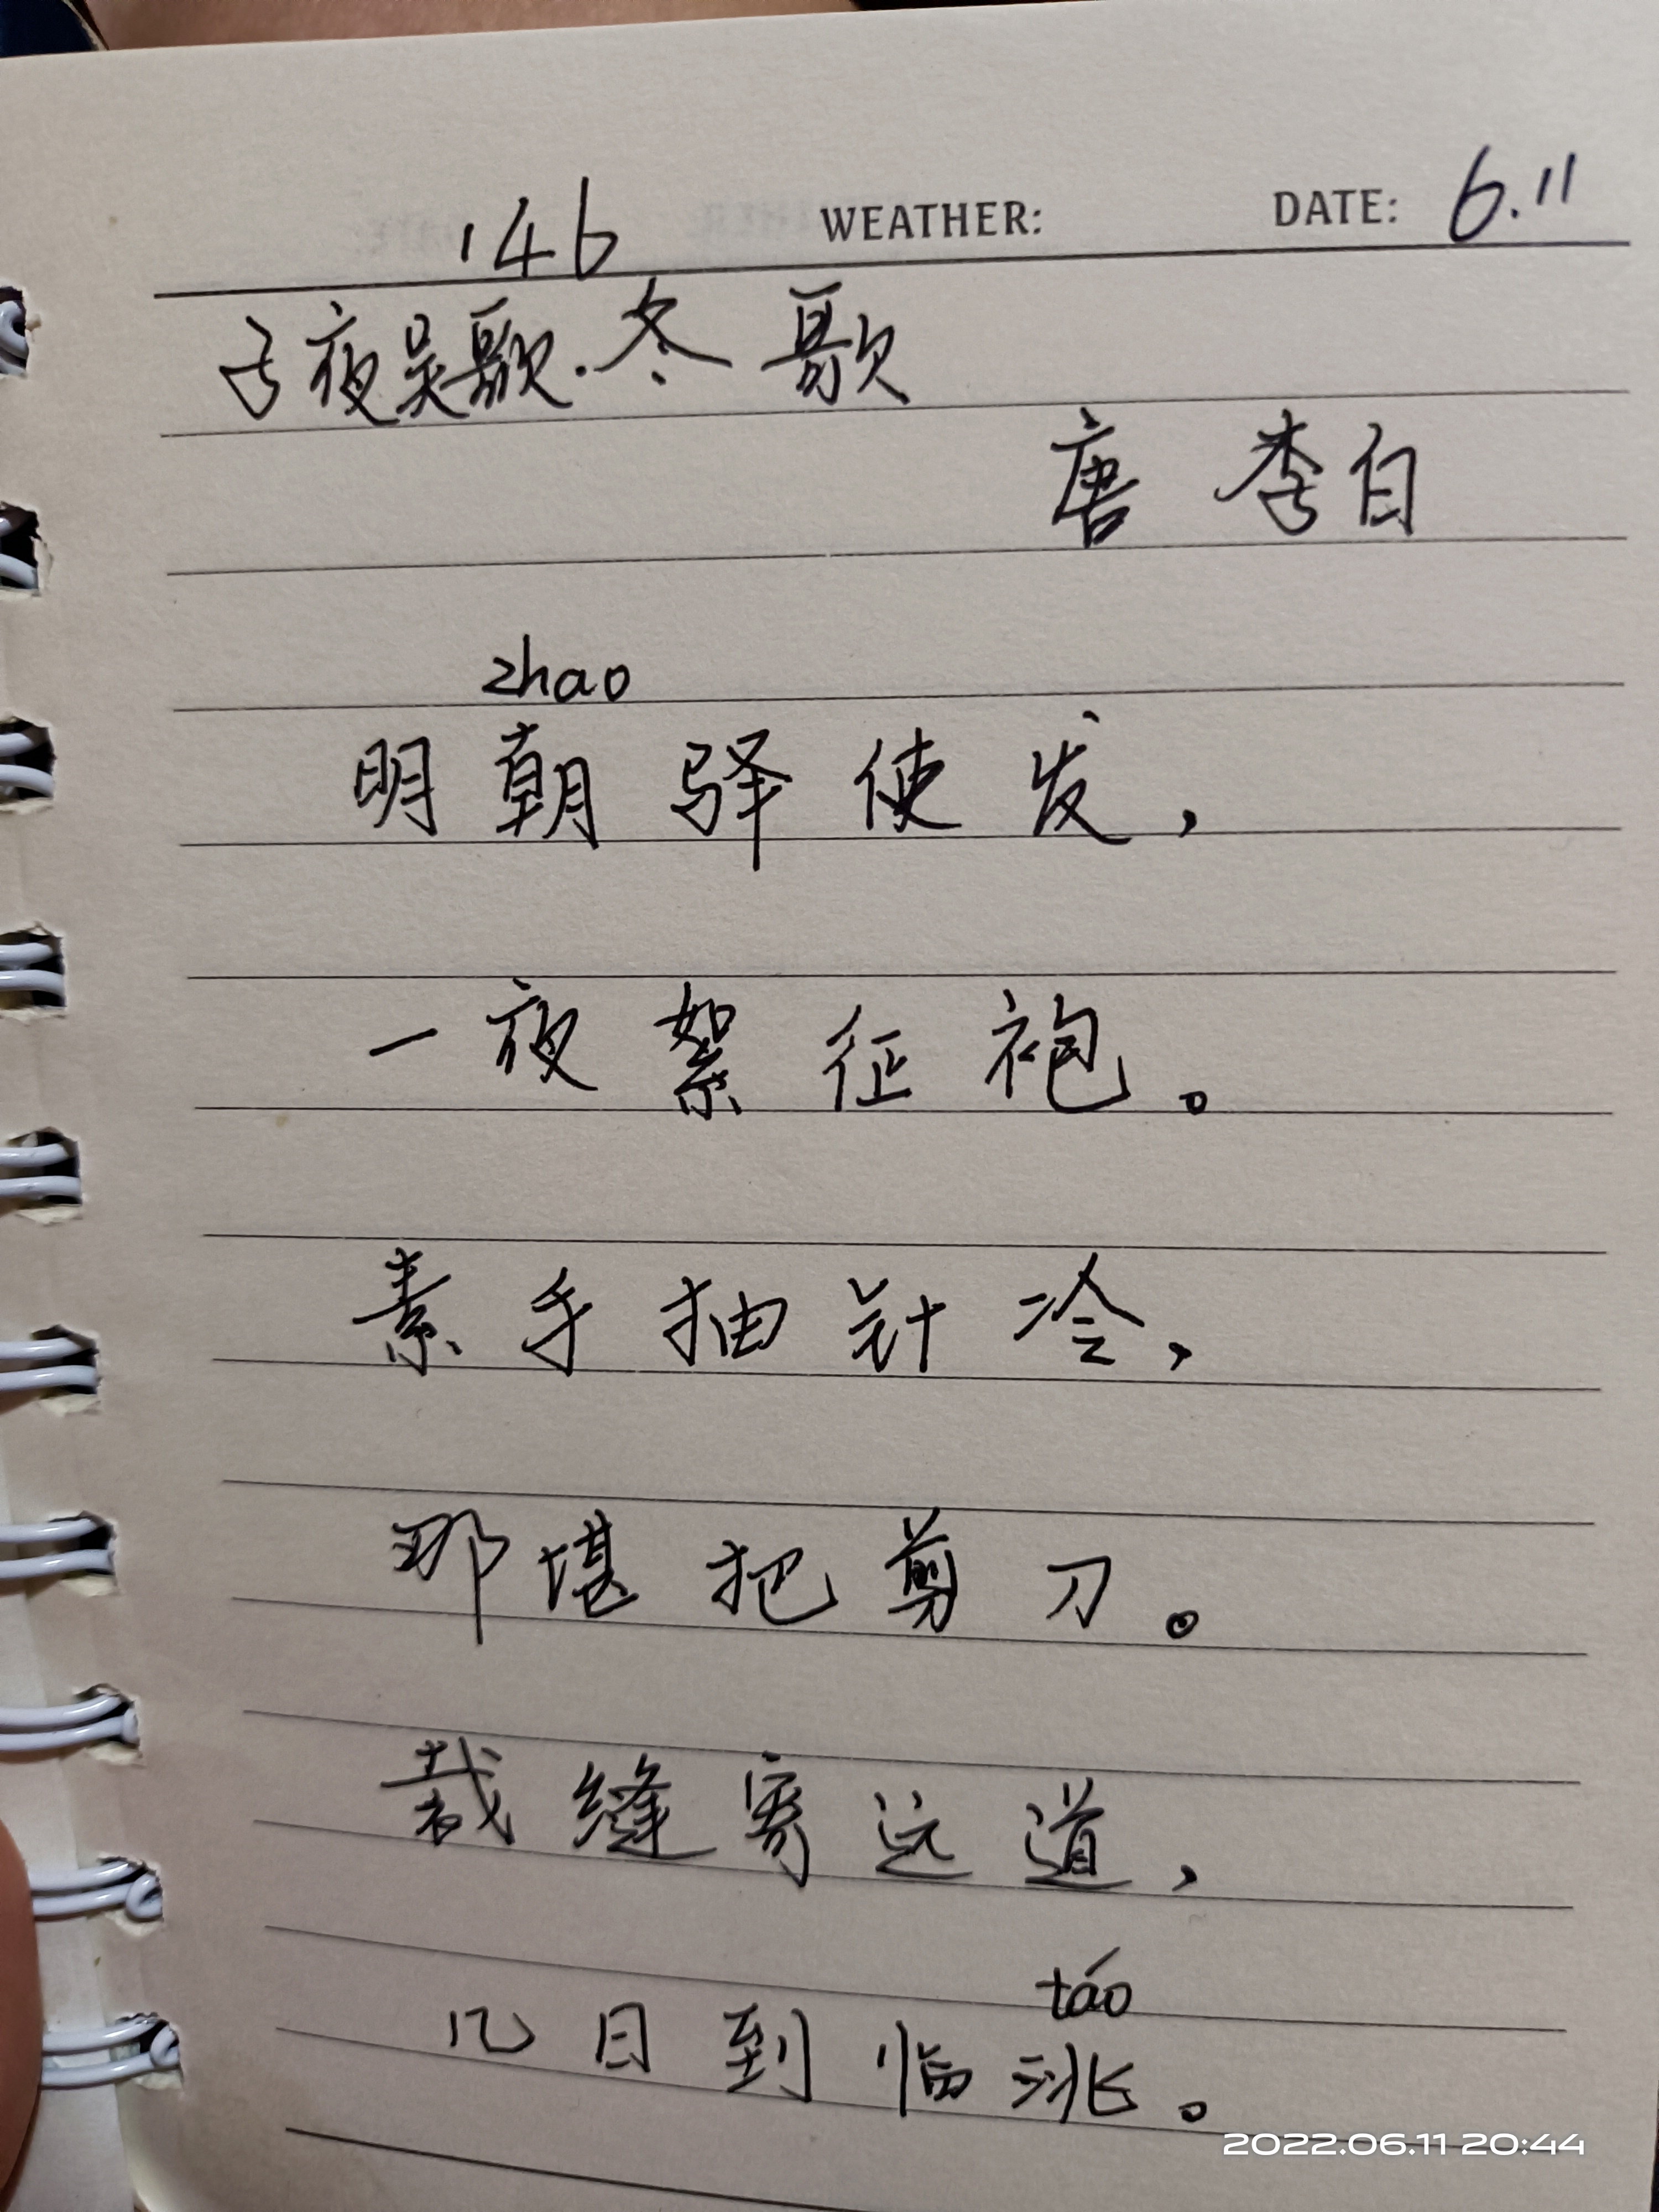 146 WEATHER: DATE: 6.11
子夜吴歌·冬歌
唐 李白
zhao
明朝驿使发,
一夜絮征袍。
素手抽针冷,
那堪把剪刀。
裁缝寄远道,
táo
几日到临洮。
2022.06.11 20:44